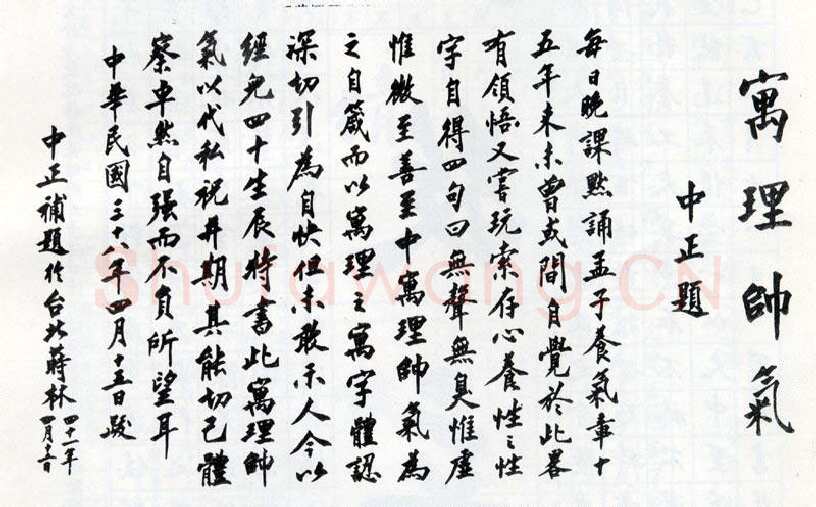 寓理帥氣
中正題
每日晚課默誦孟子養氣章十
五年來未曾或間自覺於此畧
有領悟又嘗玩索存心養性之性
字自得四句曰無聲無臭惟虛
惟微至善至中寓理帥氣為
之自箴而以寓理之寓字體認
深切引為自快但未敢示人今以
經兒四十生辰特書此寓理帥
氣以代私祝并期其能切己體
察卓然自强而不負所望耳
中華民國三十八年四月十五日跋
中正補題於台北蔣林
四十一年
四月
Shufawang.CN